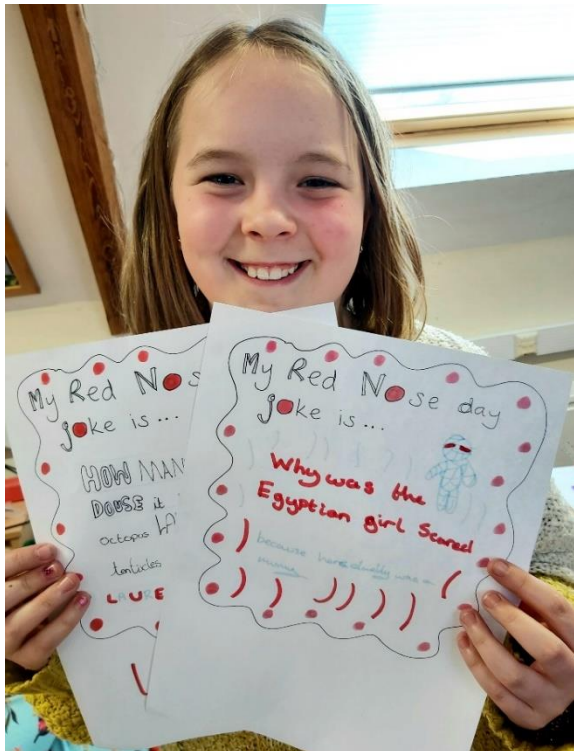 My Red Nos
joke is ...
HOW MAN
DOUSE it
octopus
tenticles
LAURE
My Red Nose day
joke is ...
Why was the
Egyptian girl Scared
because was a